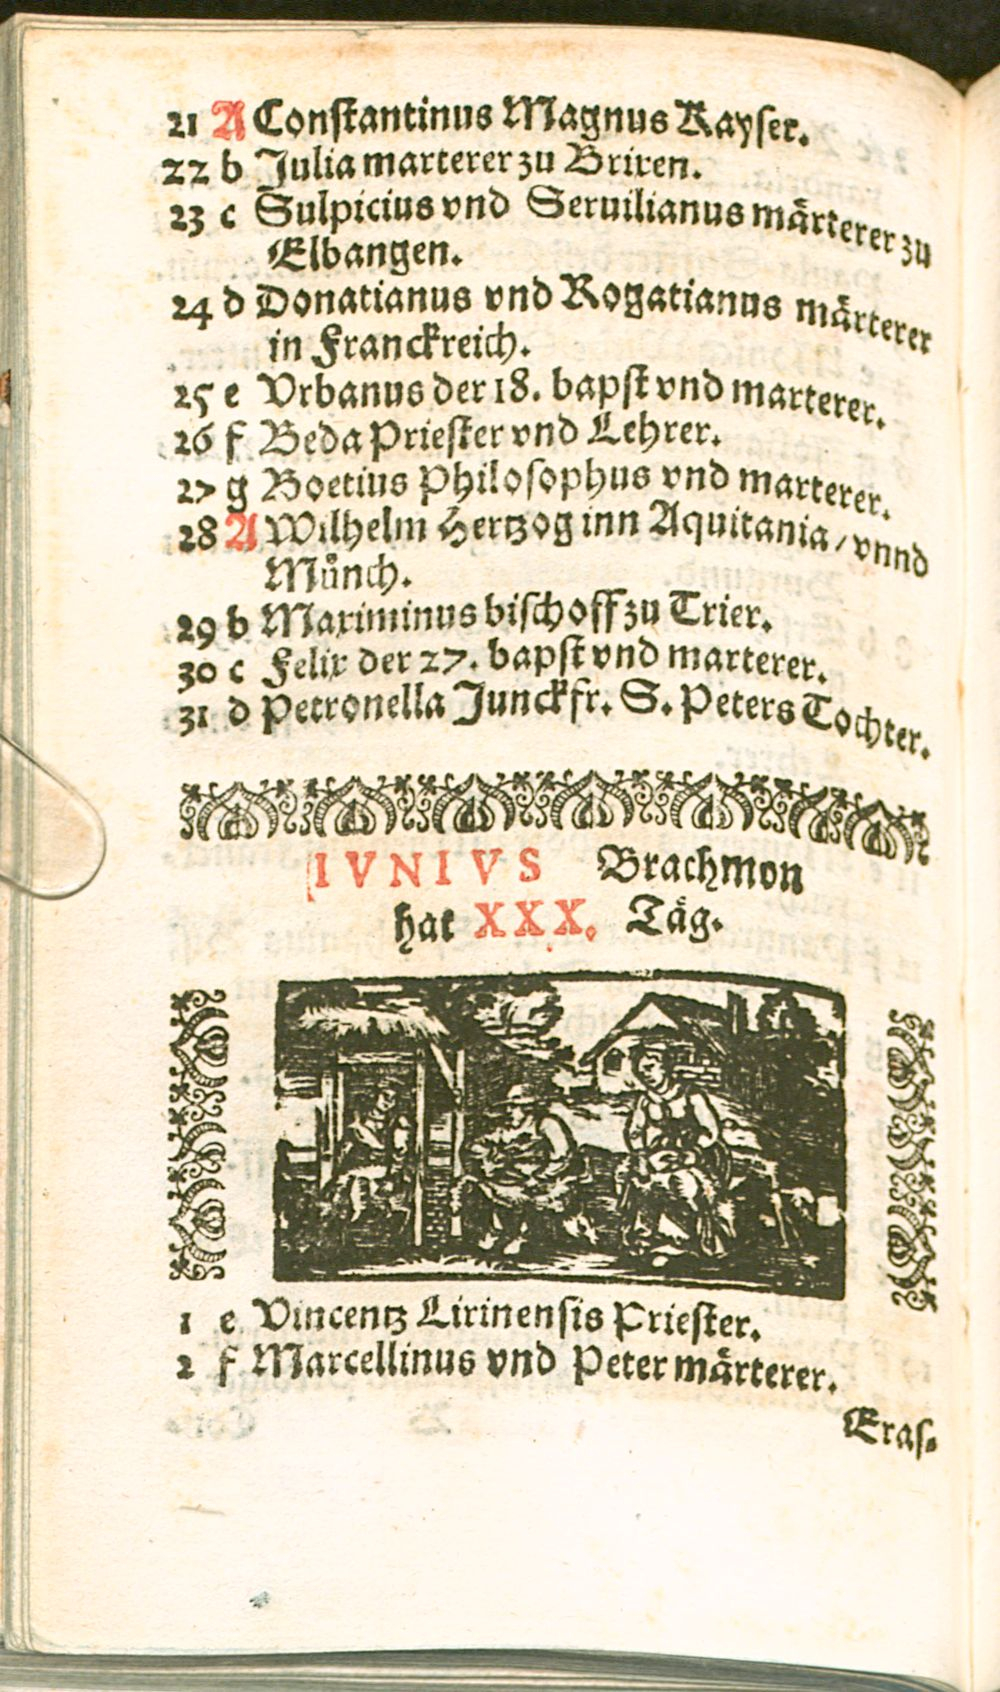 21 A Constantinus Magnus Kayser.
22 b Julia marterer zu Brixen.
23 c Sulpicius vnd Seruilianus mårterer zu
Elbangen.
24 d Donatianus vnd Rogatianus mårterer
in Franckreich.
25 e Vrbanus der 18. bapst vnd marterer.
26 f Beda Priester vnd Lehrer.
27 g Boetius Philosophus vnd marterer.
28 A Wilhelm Hertzog inn Aquitania / vnnd
Můnch.
29 b Maximinus bischoff zu Trier.
30 c Felix der 27. bapst vnd marterer.
31 d Petronella Junckfr. S. Peters Tochter.
IVNIVS Brachmon
hat XXX. Tåg.
1 e Vincentz Lirinensis Priester.
2 f Marcellinus vnd Peter mårterer.
Eras-